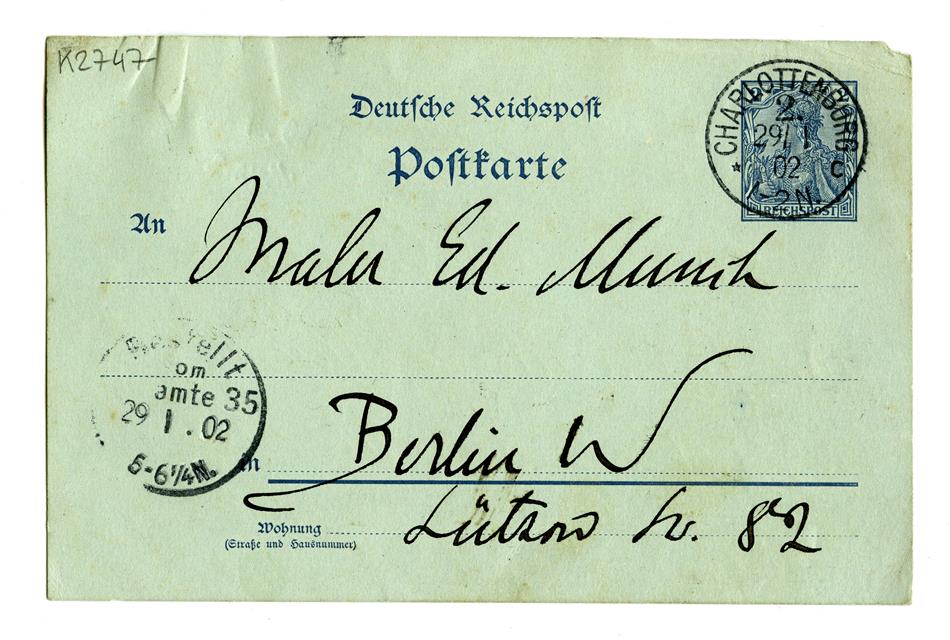 K2747
Deutsche Reichspost
Postkarte
CHARLOTTENBURG
2.
29/1
02 c
-2N.
REICHSPOST
An Maler Ed. Munch
Bestellt
vom
amte 35
29 1.02
5-6 1/4 N.
in Berlin W
Wohnung Lützow Str. 82
(Straße und Hausnummer)